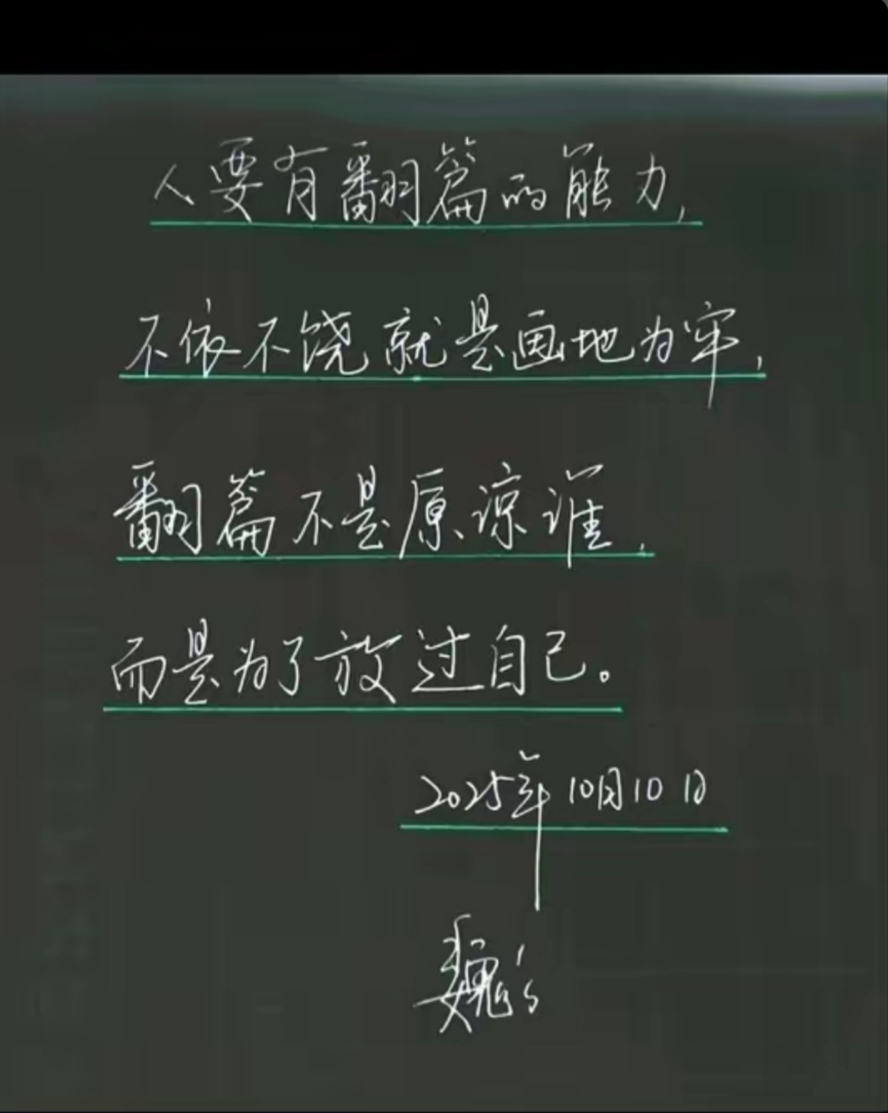 人要有翻篇的能力,
不依不饶就是画地为牢,
翻篇不是原谅谁,
而是为了放过自己。
2025年10月10日
魏's